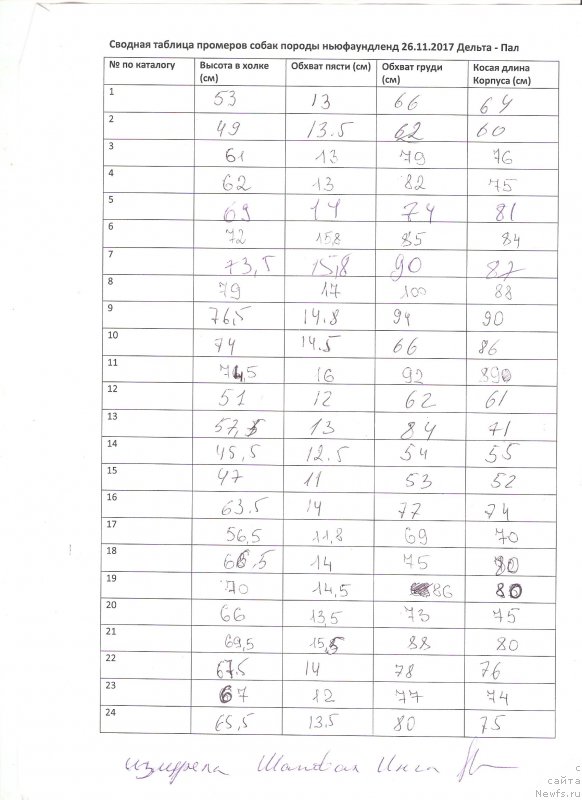 Сводная таблица промеров собак породы ньюфаундленд 26.11.2017 Дельта - Пал
№ по каталогу Высота в холке (см) Обхват пясти (см) Обхват груди (см) Косая длина Корпуса (см)
1 53 13 66 64
2 49 13.5 62 60
3 61 13 79 76
4 62 13 82 75
5 69 14 74 81
6 72 15,8 85 84
7 73,5 15,8 90 87
8 79 17 100 88
9 76,5 14.8 94 90
10 74 14.5 66 86
11 16 92
12 51 12 62 61
13 57,5 13 84 71
14 45,5 12.5 54 55
15 47 11 53 52
16 63.5 14 77 74
17 56,5 11,8 69 70
18 14 75
19 70 14,5 86 80
20 66 13,5 73 75
21 69,5 15,5 88 80
22 67.5 14 78 76
23 67 12 77 74
24 65,5 13.5 80 75
измерела Инга
с
сайта
Newfs.ru